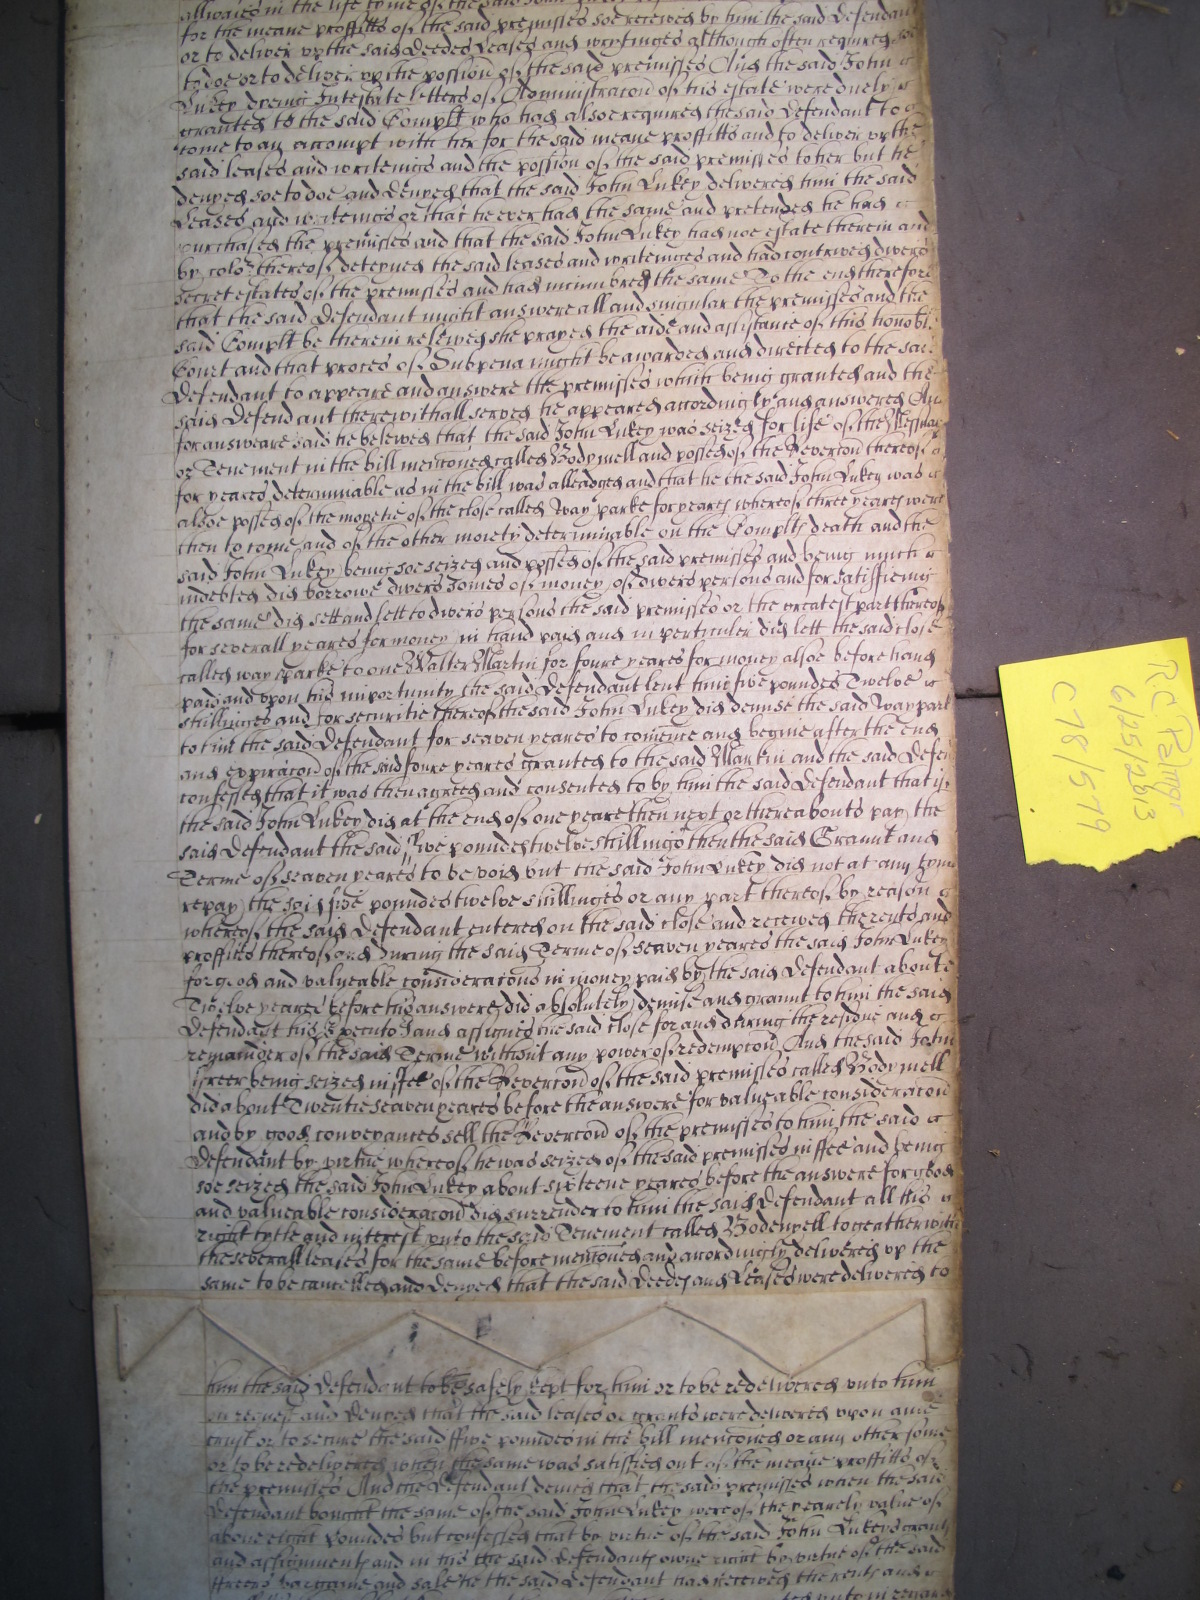 allwaies in the life tyme of the said John
for the meane proffitts of the said premisses soe received by him the said Defendant
or to deliver up the said Deedes Leases and writinges although often required soe
to doe or to deliver up the possion of the said premisses And the said John
Lukey dyeing Intestate letters of Administracon of his estate were duely
graunted to the said Complt who had alsoe required the said Defendant to
come to an accompt with her for the said meane proffitts and to deliver up the
said leases and writeings and the possion of the said premisses to her but he
denyed soe to doe and denyed that the said John Lukey delivered him the said
Leases and writeings or that he ever had the same and pretended he had
purchased the premisses and that the said John Lukey had noe estate therein and
by color thereof deteyned the said leases and writeinges and had contrived divers
secret estates of the premisses and had incumbred the same To the end therefore
that the said Defendant might answere all and singular the premisses and the
said Complt be therein releived she prayed the aide and assistance of this honoble
Court and that proces of Subpena might be awarded and directed to the said
Defendant to appeare and answere the premisses which being granted and the
said Defendant therewithall served he appeared accordingly and answered And
for answeare said he beleived that the said John Lukey was seized for life of the Messuage
or Tenement in the bill mencioned called Bodymell and possed of the Revercon thereof
for yeares determinable as in the bill was alleadged and that he the said John Lukey was
alsoe possed of the moyetie of the close called Way parke for yeares whereof three yeares were
then to come and of the other moiety determinable on the Complts death and the
said John Lukey being soe seized and possed of the said premisses and being much
indebted did borrowe divers somes of money of divers persons and for satisfieing
the same did sett and lett to divers persons the said premisses or the greatest part thereof
for severall yeares for money in hand paid and in perticuler did lett the said close
called way parke to one Walter Martin for foure yeares for money alsoe before hand
paid and upon his importunity the said Defendant lent him five poundes Twelve
shillinges and for securitie thereof the said John Lukey did demise the said Way park
to him the said Defendant for seaven yeares to comence and begine after the end
and expiracon of the said foure yeares granted to the said Martin and the said Defen
confessed that it was then agreed and consented to by him the said Defendant that if
the said John Lukey did at the end of one yeare then next or thereabouts pay the
said Defendant the said ffive poundes twelve shillings then the said Graunt and
Terme of seaven yeares to be void but the said John Lukey did not at any tyme
repay the said five poundes twelve shillinges or any part thereof by reason
whereof the said Defendant entered on the said close and received the rents and
proffits thereof and during the said Terme of seaven yeares the said John Lukey
for good and valueable consideracons in money paid by the said Defendant aboute
Twelve yeares before his answere did absolutely demise and graunt to him the said
Defendant his Executors and assignes the said close for and during the residue and
remainder of the said Terme without any power of redempcon And the said John
ffreer being seized in ffee of the Revercon of the said premisses called Bodymell
did about Twentie seaven yeares before the answere for valueable consideracon
and by good conveyances sell the Revercon of the premisses to him the said
Defendant by virtue whereof he was seized of the said premisses in ffee and being
soe seized the said John Lukey about sixteene yeares before the answere for good
and valueable consideracon did surrender to him the said Defendant all his
right tytle and interest unto the said Tenement called Bodenyell togeather with
the severall leases for the same before mencioned and accordingly delivered up the
same to be cancelled and denyed that the said Deedes and Leases were delivered to
him the said Defendant to be safely kept for him or to be redelivered unto him
on request and denyed that the said leases or grants were delivered upon any
trust or to secure the said ffive poundes in the bill mencioned or any other some
or to be redelivered when the same was satisfied out of the meane proffitts of
the premisses And the Defendant denied that the said premisses when the said
Defendant bought the same of the said John Lukey were of the yearely value of
above eight poundes but confessed that by virtue of the said John Lukeys grants
and assignments and in his the said Defendants owne right by virtue of the said
ffreers bargaine and sale he the said Defendant had received the rents and
RC Palmer
6/25/2013
C78/579